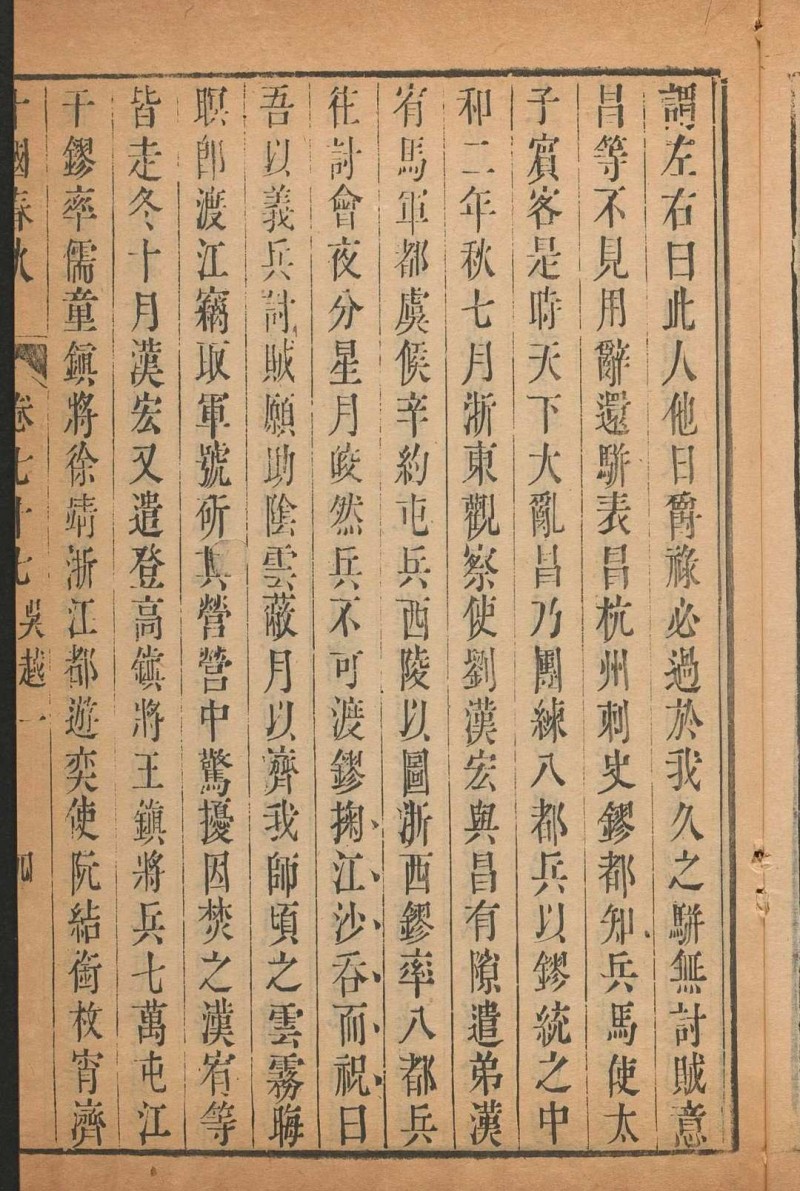 謂左右曰此人他日爵祿必過於我久之駢無討賊意
昌等不見用辭還駢表昌杭州刺史鏐都知兵馬使太
子賓客是時天下大亂昌乃團練八都兵以鏐統之中
和二年秋七月浙東觀察使劉漢宏與昌有隙遣弟漢
宥馬軍都虞候辛約屯兵西陵以圖浙西鏐率八都兵
往討會夜分星月皎然兵不可渡鏐掬江沙吞而祝曰
吾以義兵討賊願助陰雲蔽月以濟我師頃之雲霧晦
暝郎渡江竊取軍號斫其營營中驚擾因焚之漢宥等
皆走冬十月漢宏又遣登高鎮將王鎮將兵七萬屯江
干鏐率儒童鎮將徐靖浙江都遊奕使阮結銜枚宵濟
十國春秋 卷七十七 吳越一 四